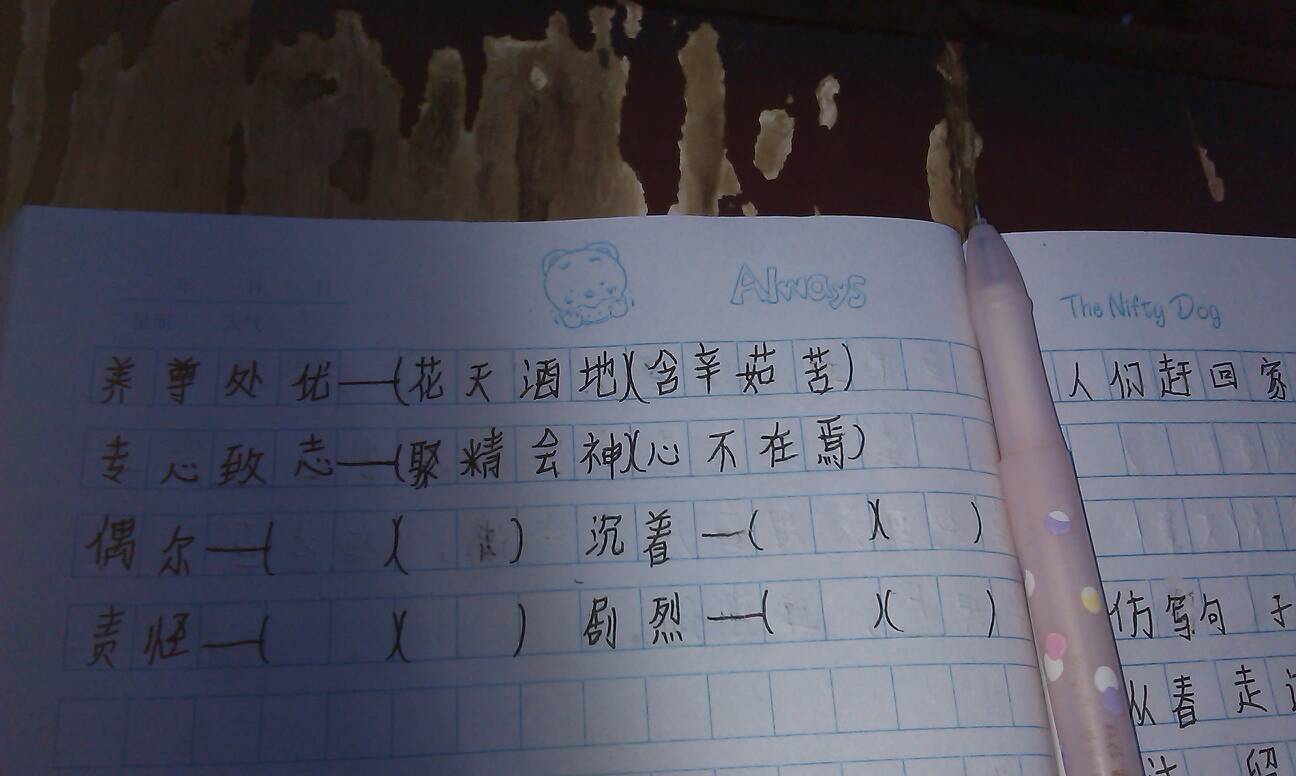 年 月 日
星期 天气
Always
养尊处优——(花天酒地)(含辛茹苦)
专心致志——(聚精会神)(心不在焉)
偶尔——( )( ) 沉着——( )( )
责怪——( )( ) 剧烈——( )( )
The Nifty Dog
人们赶回家
仿写句子
从春走